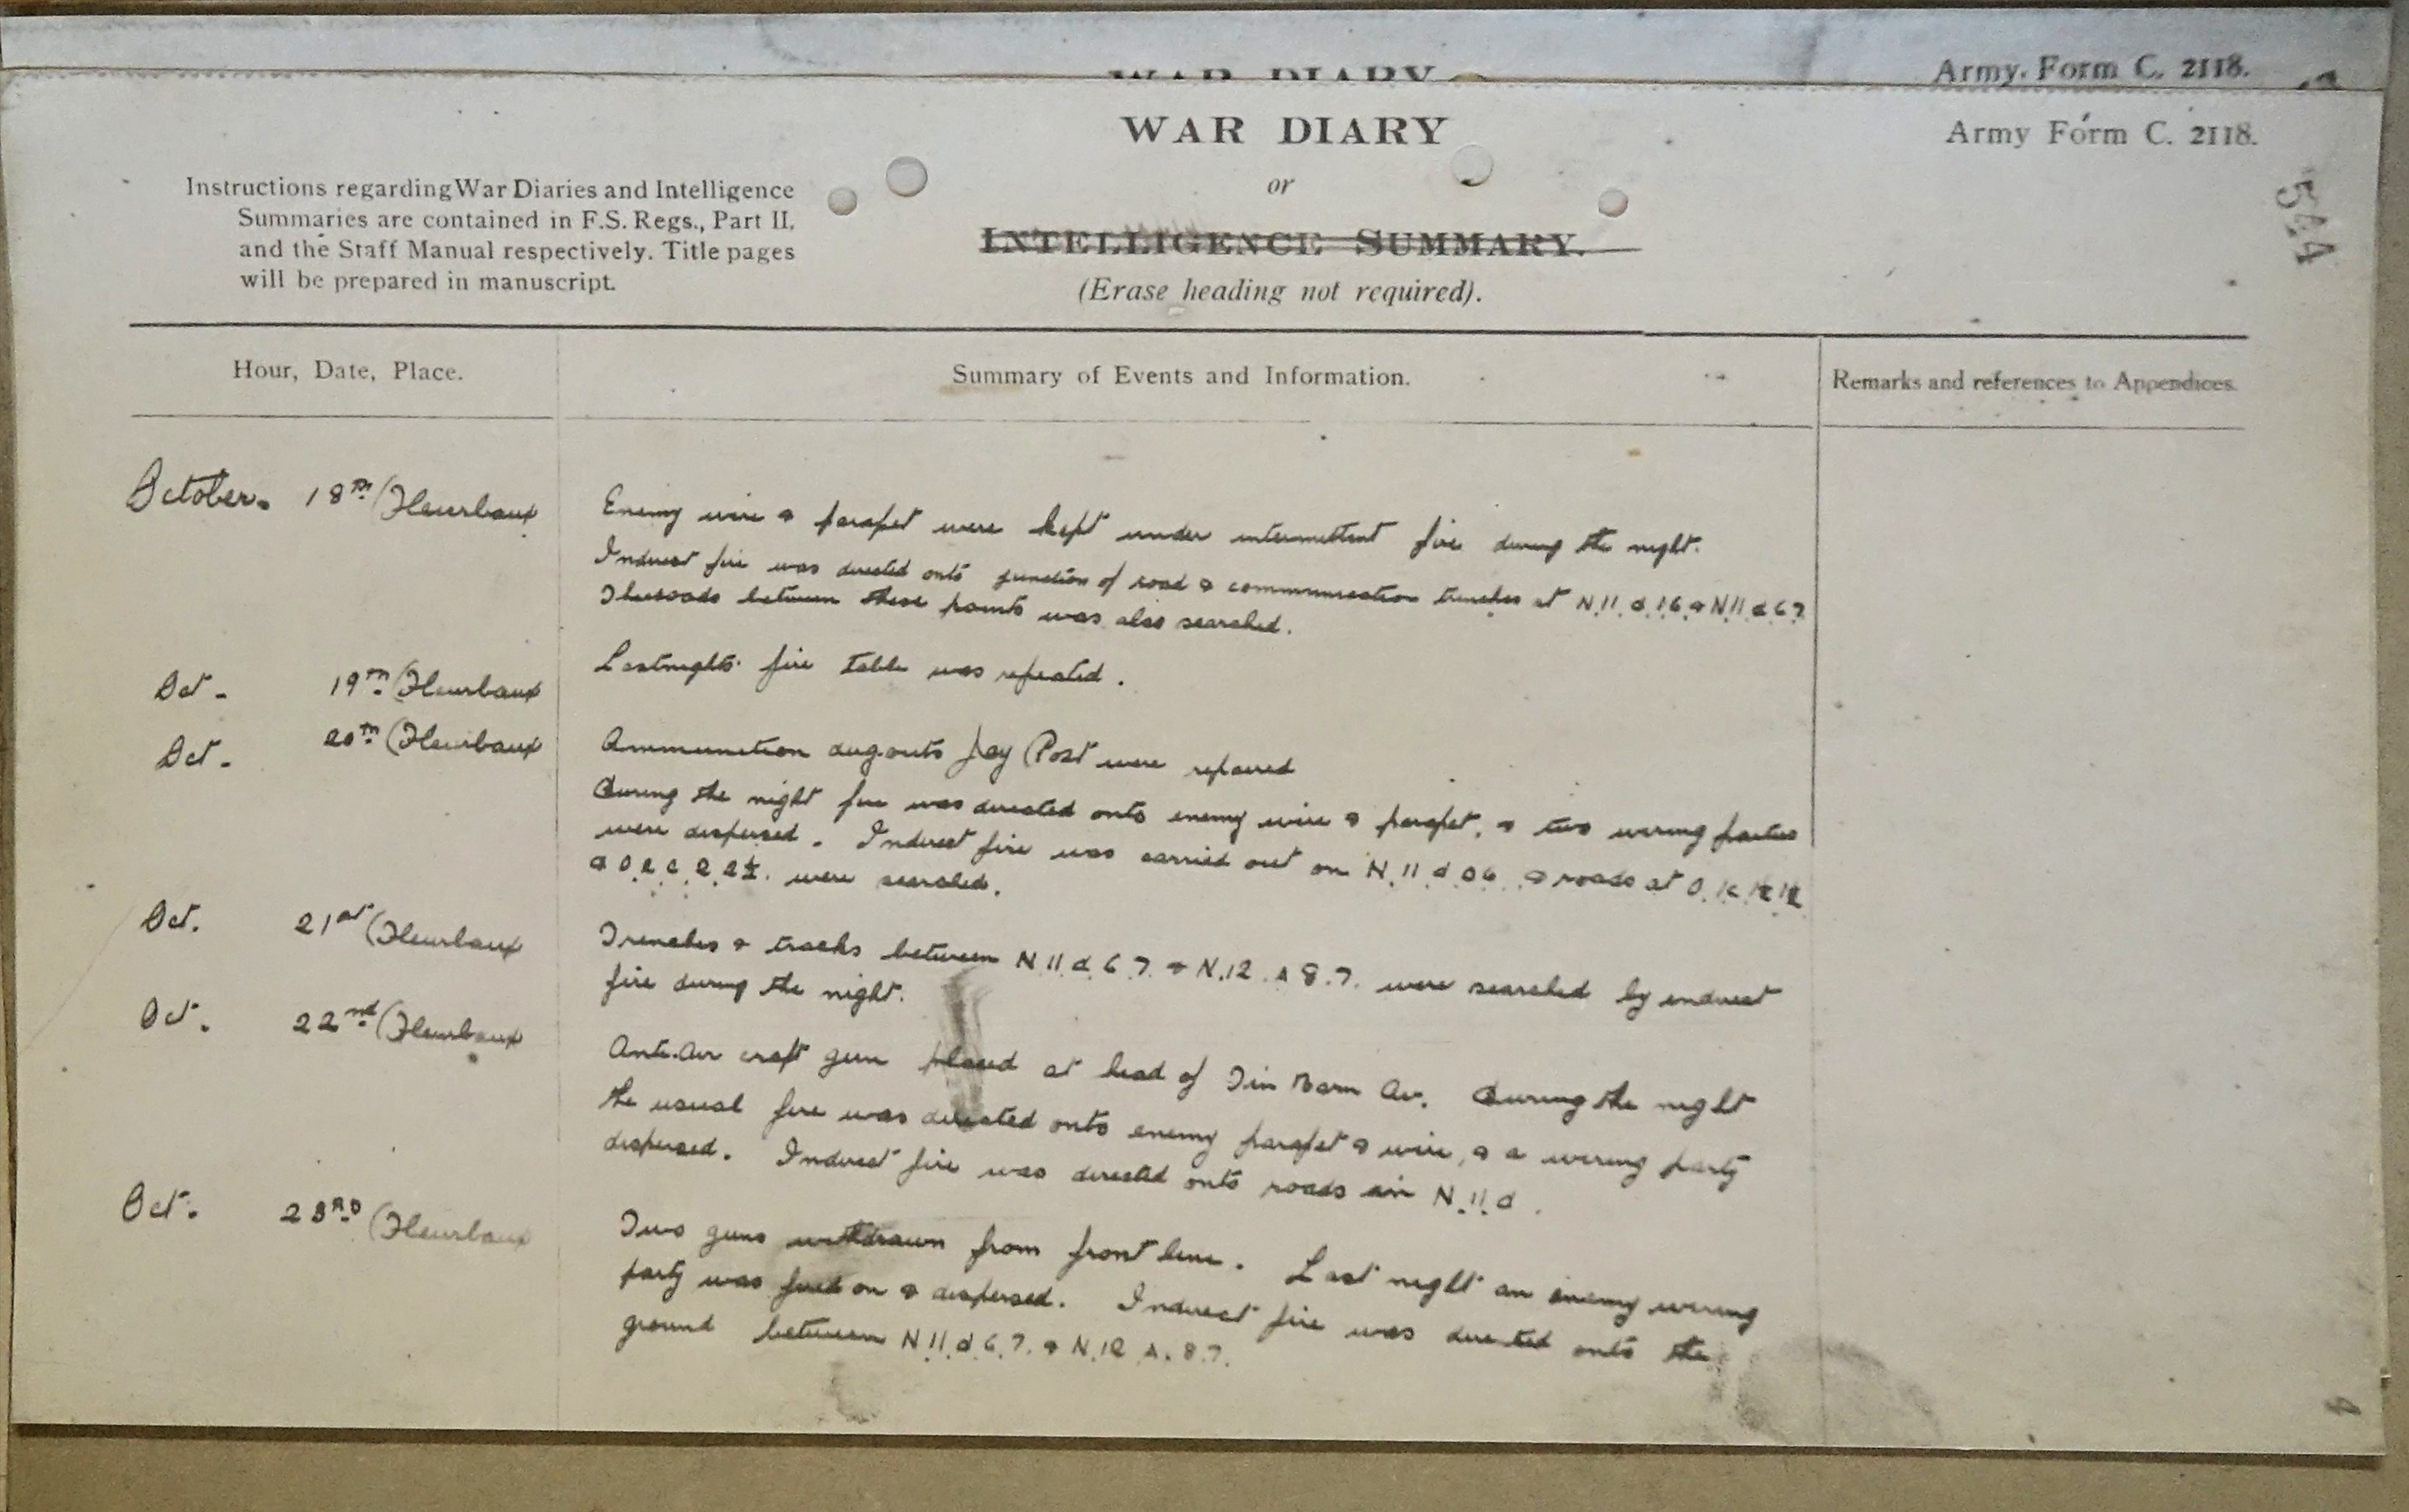 Army. Form C. 2118.
WAR DIARY
Army Form C. 2118.
or
INTELLIGENCE SUMMARY.
(Erase heading not required).
544
Instructions regarding War Diaries and Intelligence
Summaries are contained in F.S. Regs., Part II,
and the Staff Manual respectively. Title pages
will be prepared in manuscript.
Hour, Date, Place.
Summary of Events and Information.
Remarks and references to Appendices.
October. 18th (Fleurbaux
Enemy wire & parapet were kept under intermittent fire during the night.
Indirect fire was directed onto junction of road & communication trenches at N.11.d.1.6 & N.11.d.6.7
The roads between these points was also searched.
Oct - 19th (Fleurbaux
Lastnights fire table was repeated.
Oct - 20th (Fleurbaux
Ammunition dugouts Jay Post were repaired
During the night fire was directed onto enemy wire & parapet, & two wiring parties
were dispersed. Indirect fire was carried out on N.11.d.0.6. & roads at
were searched.
Oct. 21st (Fleurbaux
Trenches & tracks between N.11.d.6.7. & N.12.A.8.7. were searched by indirect
fire during the night.
Oct. 22nd (Fleurbaux
Anti-Air craft gun placed at head of Tin Barn Av. During the night
the usual fire was directed onto enemy parapet & wire, & a wiring party
dispersed. Indirect fire was directed onto roads in N.11.d.
Oct. 23RD (Fleurbaux
Two guns withdrawn from front line. Last night an enemy wiring
party was fired on & dispersed. Indirect fire was directed onto the
ground between N.11.d.6.7. & N.12.A.8.7.
4